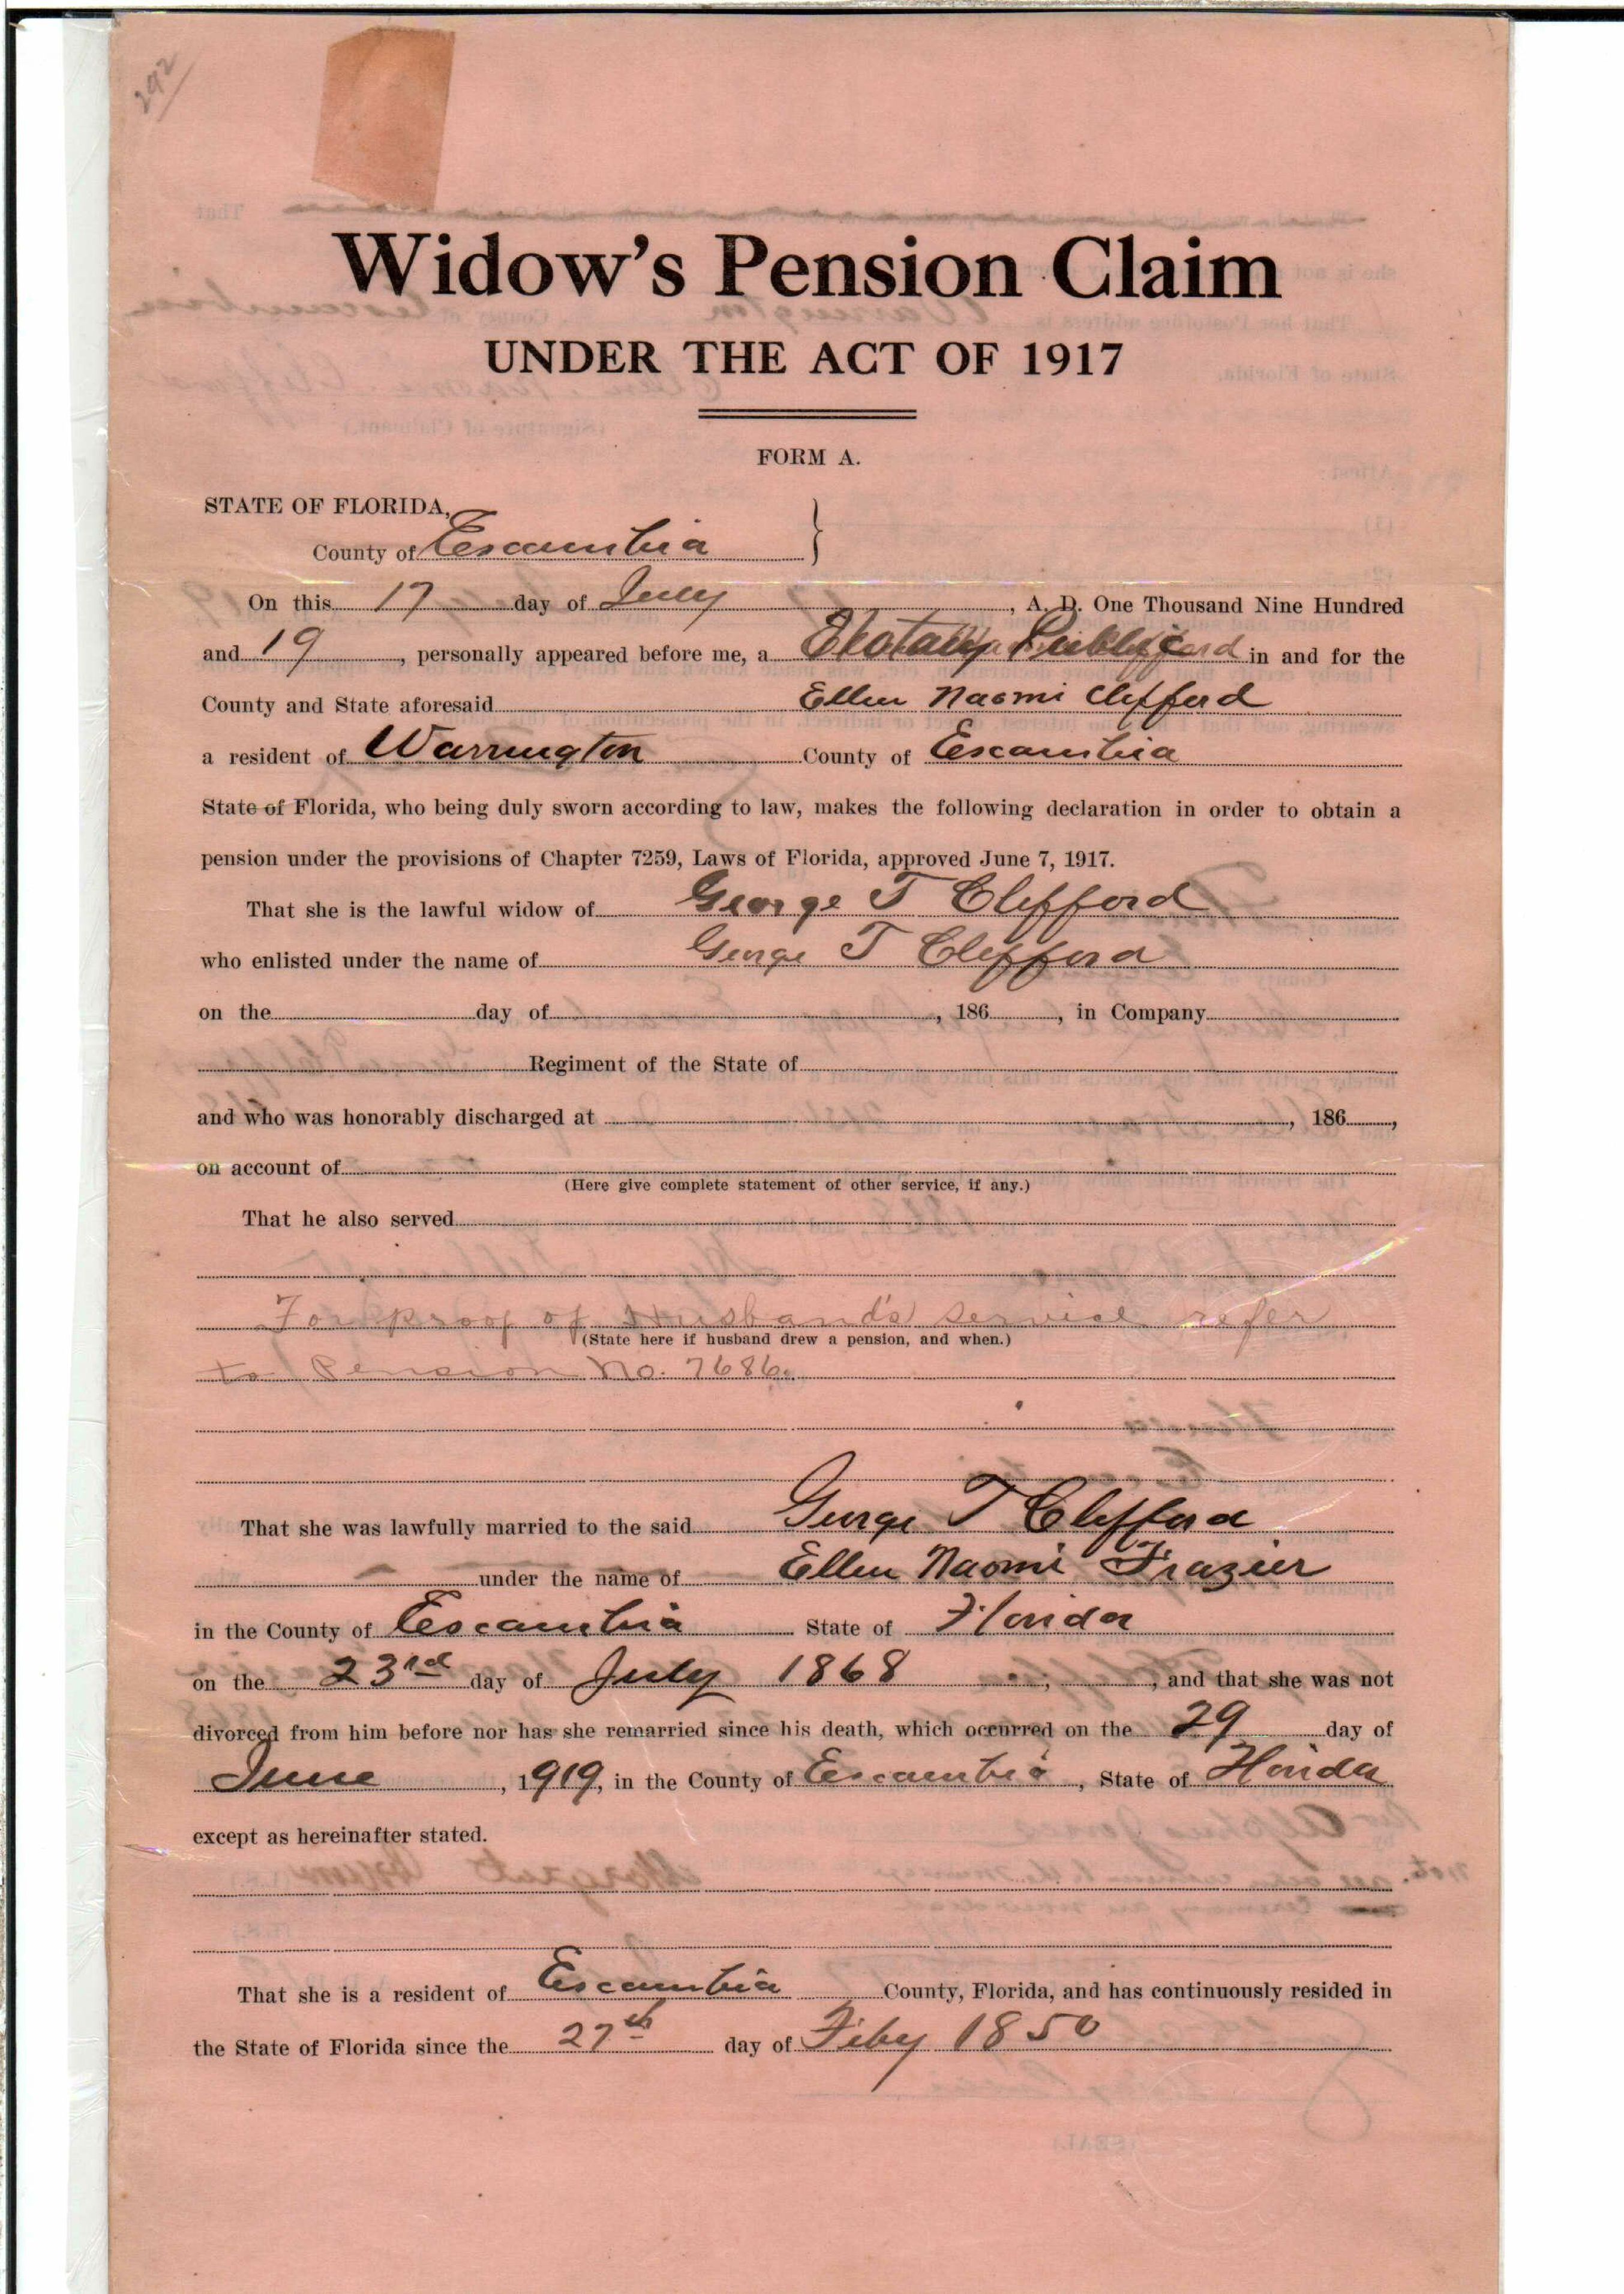 292
Widow's Pension Claim
UNDER THE ACT OF 1917
FORM A.
STATE OF FLORIDA,
County of Escambia
On this 17 day of July, A. D. One Thousand Nine Hundred
and 19, personally appeared before me, a Notary Public in and for the
County and State aforesaid Ellen Naomi Clifford
a resident of Warrington County of Escambia
State of Florida, who being duly sworn according to law, makes the following declaration in order to obtain a
pension under the provisions of Chapter 7259, Laws of Florida, approved June 7, 1917.
That she is the lawful widow of George T Clifford
who enlisted under the name of George T Clifford
on the day of , 186 , in Company
Regiment of the State of
and who was honorably discharged at , 186 ,
on account of
(Here give complete statement of other service, if any.)
That he also served
For proof of Husband's service refer
(State here if husband drew a pension, and when.)
to Pension No. 7686.
That she was lawfully married to the said George T Clifford
under the name of Ellen Naomi Frazier
in the County of Escambia State of Florida
on the 23rd day of July 1868 , and that she was not
divorced from him before nor has she remarried since his death, which occurred on the 29 day of
June, 1919, in the County of Escambia, State of Florida
except as hereinafter stated.
That she is a resident of Escambia County, Florida, and has continuously resided in
the State of Florida since the 27th day of Feby 1850